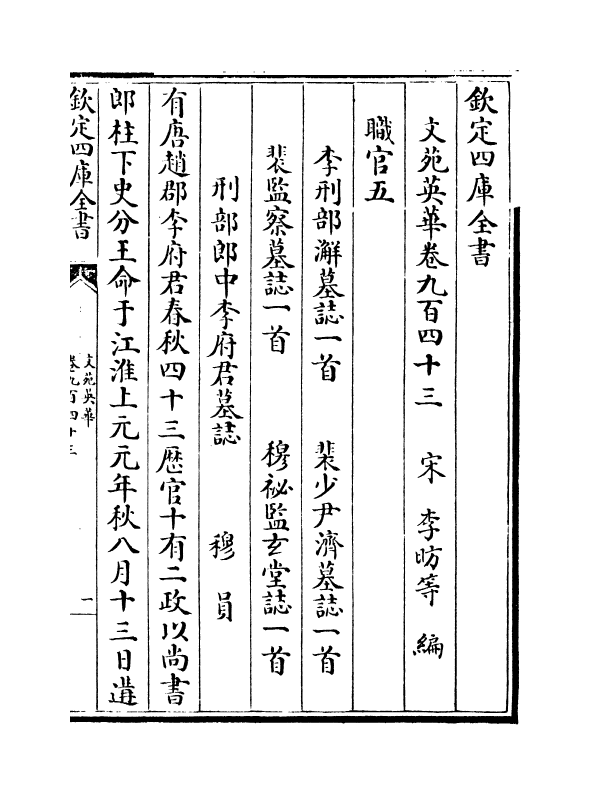 欽定四庫全書
文苑英華卷九百四十三　宋　李昉等　編
職官五
李刑部澥墓誌一首　裴少尹濟墓誌一首
裴監察墓誌一首　穆祕監玄堂誌一首
刑部郎中李府君墓誌　穆員
有唐趙郡李府君春秋四十三歴官十有二政以尚書
郎柱下史分王命于江淮上元元年秋八月十三日遘
欽定四庫全書
文苑英華
卷九百四十三
一